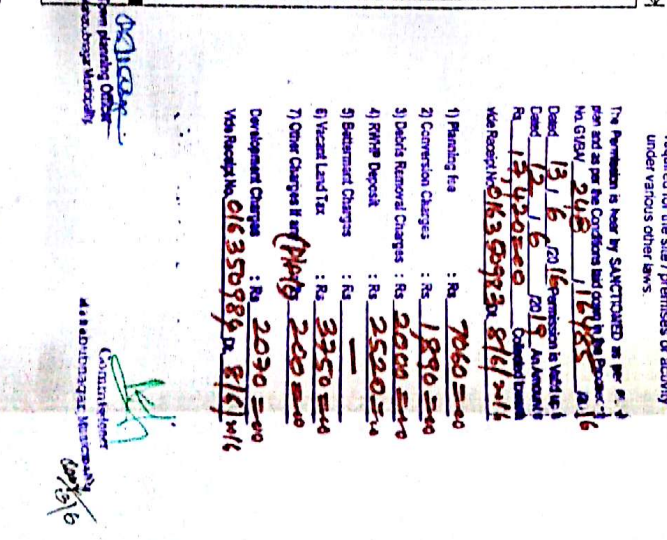 under various other laws.
The Permission is hear by SANCTIONED as per
plan and as per the Conditions laid down in the
No. G1/BA/ 248 / 16485
Dated 13 / 6 /2016 Permission is Valid up
Dated 12 / 6 /2019 An Amount
Rs 13,420=00
vide Receipt No. 016350983 Dt 8/6/2016
1) Planning fee : Rs 7060=00
2) Conversion Charges : Rs 1890=00
3) Debris Removal Charges : Rs 2000=00
4) RWHP Deposit : Rs 2520=00
5) Betterment Charges : Rs —
6) Vacant Land Tax : Rs 3750=00
7) Other Charges if any : Rs 200=00
Development Charges : Rs 2070=00
Vide Receipt No. 016350984 Dt 8/6/2016
Town planning Officer
Mahabubnagar Municipality
Commissioner
Mahabubnagar Municipality